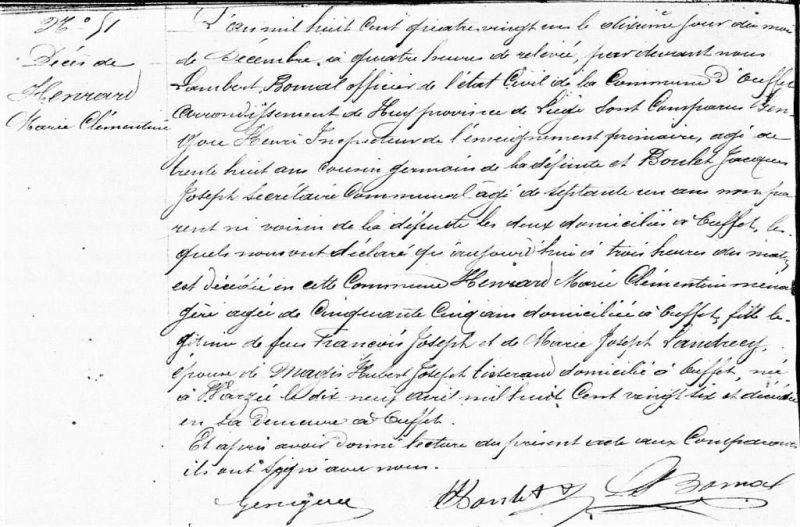 N° 51
Décès de
Henrard
Marie Clémentine
L'an mil huit cent quatre vingt un le dixième jour du mois
de Décembre, à quatre heures de relevée, par devant nous
Lambert Bomal officier de l'état Civil de la Commune d'Ouffet
arrondissement de Huy province de Liége sont Comparus
Henri Inspecteur de l'enseignement primaire, agé de
trente huit ans cousin germain de la défunte et Boulet Jacques
Joseph secrétaire Communal agé de septante un ans non pa
rent ni voisin de la défunte les deux domiciliés à Ouffet, les
quels nous ont déclaré qu'aujourd'hui à trois heures du matin
est décédée en cette Commune Henrard Marie Clémentine ména
gère agée de Cinquante Cinq ans domiciliée à Ouffet, fille lé
gitime de feus François Joseph et de Marie Joseph Landrecy,
épouse de Magis Hubert Joseph tisserand domicilié à Ouffet, née
à Warzée le dix neuf avril mil huit Cent vingt six et décédée
en sa demeure à Ouffet.
Et après avoir donné lecture du présent acte aux Comparants
ils ont signé avec nous.
Boulet J J L Bomal